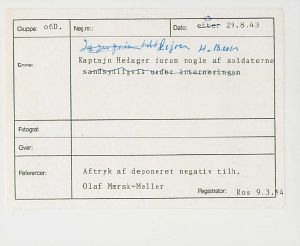 Gruppe: o6D.
Neg.nr.:
Dato: efter 29.8.43
Emne:
Kaptajn Hefager foran nogle af soldaterne
sandsynligvis under interneringen
Fotograf:
Giver:
Referencer:
Aftryk af deponeret negativ tilh.
Olaf Mærsk-Møller
Registrator: Ros 9.3.94